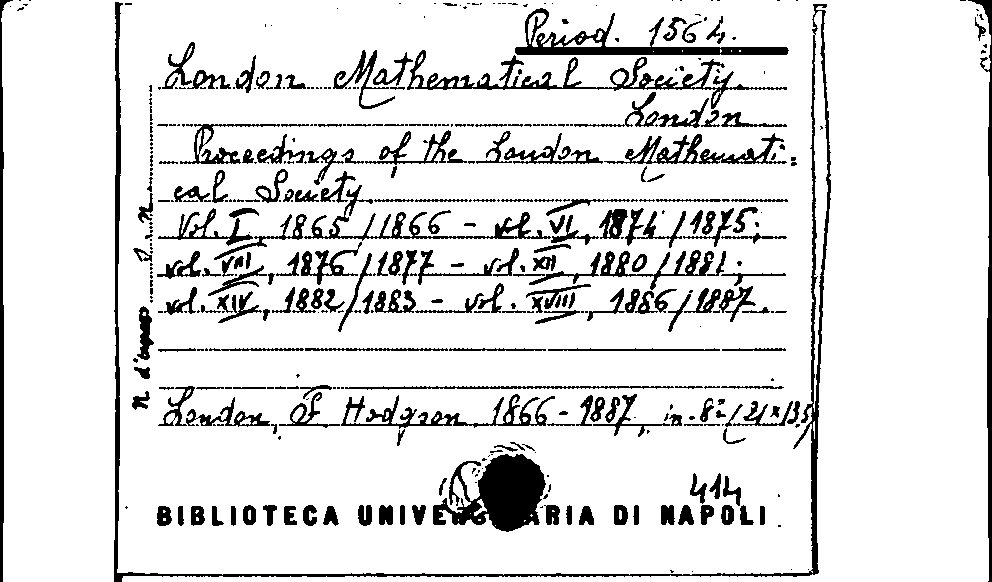 Period. 1564.
London Mathematical Society.
London
Proceedings of the London Mathemati=
cal Society.
Vol. I, 1865/1866 - vol. VI, 1874/1875;
vol. VIII, 1876/1877 - vol. XII, 1880/1881;
vol. XIV, 1882/1883 - vol. XVIII, 1886/1887.
London, F. Hodgson, 1866-1887, in-8º (21x13,5)
414
BIBLIOTECA UNIVERSITARIA DI NAPOLI
N. d'ingresso